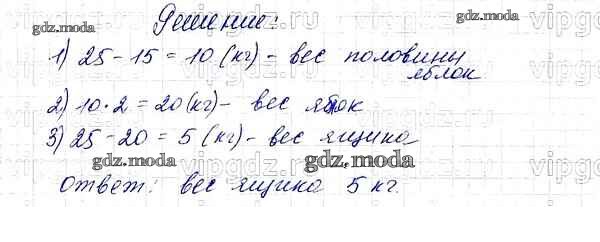 Решение:
1) 25 - 15 = 10 (кг) - вес половины
яблок
2) 10 · 2 = 20 (кг) - вес яблок
3) 25 - 20 = 5 (кг) - вес ящика
Ответ: вес ящика 5 кг.
gdz.moda
gdz.moda
gdz.moda
gdz.moda
vipgdz
vipgdz
vipgdz
vipgdz